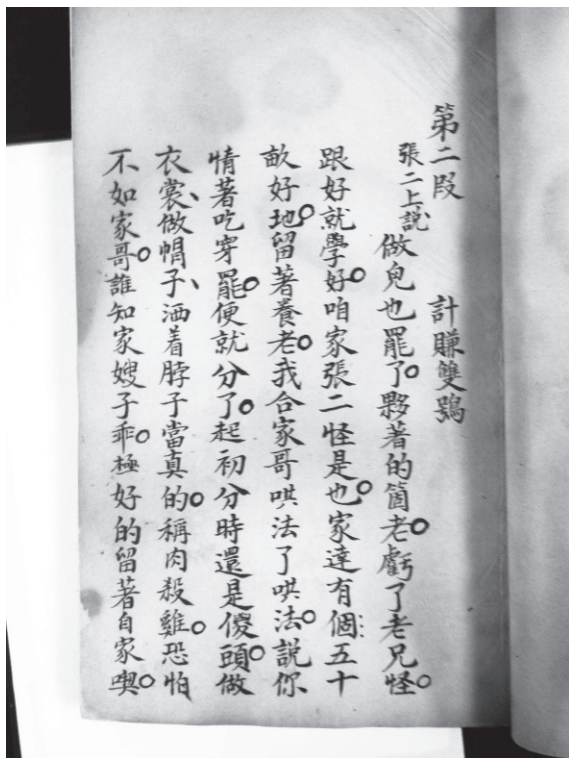 第二段　計賺雙鴞
張二上說　做兒也罷了。夥著的箇老。虧了老兄怪。
跟好就學好。咱家張二怪是也。家達有個五十
畝好地。留著養老。我合家哥哄法了哄法。說你
情著吃穿罷。便就分了。起初分時還是傻頭。做
衣裳、做帽子、洒着脖子當真的。稱肉殺雞。恐怕
不如家哥。誰知家嫂子乖。極好的留著自家喫。